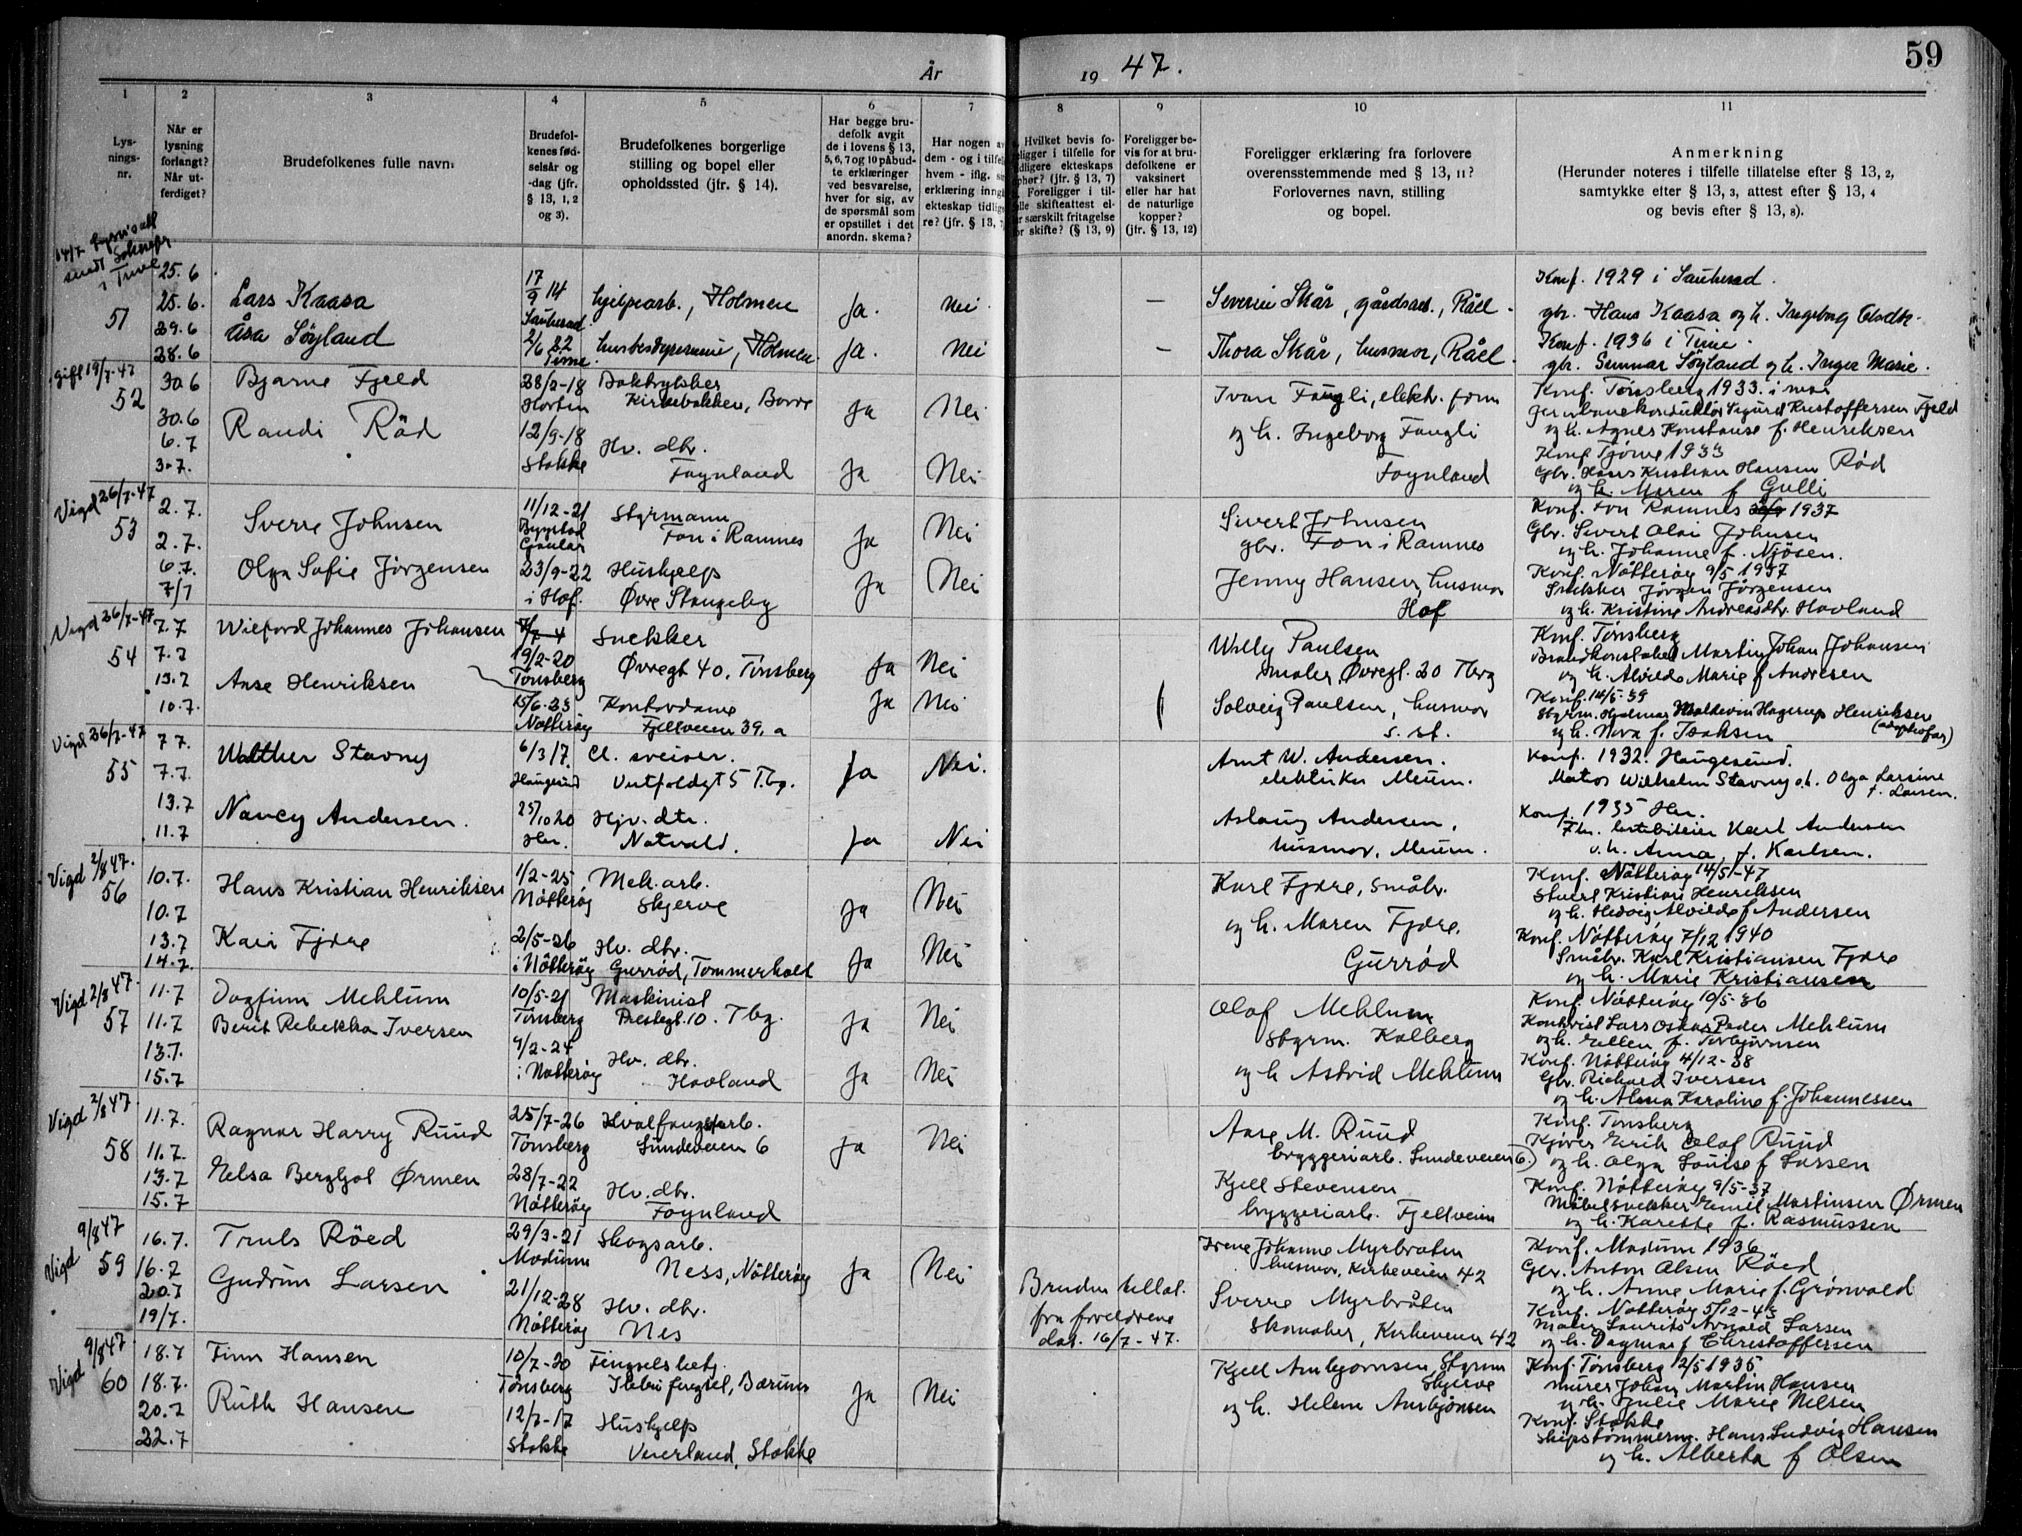 59
År
19 47.
1
2
3
4
5
6
7
8
9
10
11
Lys-
nings-
nr.
Når er
lysning
forlangt?
Når ut-
ferdiget?
Brudefolkenes fulle navn:
Brudefol-
kenes fød-
selsår og
-dag (jfr.
§ 13, 1, 2
og 3).
Brudefolkenes borgerlige
stilling og bopel eller
opholdssted (jfr. § 14).
Har begge bru-
defolk avgit
de i lovens § 13,
5, 6, 7 og 10 påbud-
te erklæringer
ved besvarelse,
hver for sig, av
de spørsmål som
er opstillet i det
anordn. skema?
Har nogen av
dem - og i tilfelle
hvem - iflg.
erklæring inngå
ekteskap tidlige
re? (jfr. § 13,
Hvilket bevis fo-
religger i tilfelle for
tidligere ekteskaps
ophør? (jfr. § 13, 7)
Foreligger i til-
felle skifteattest el-
ler særskilt fritagelse
for skifte? (§ 13, 9)
Foreligger be-
vis for at bru-
defolkene er
vaksinert
eller har hat
de naturlige
kopper?
(jfr. § 13, 12)
Foreligger erklæring fra forlovere
overensstemmende med § 13, 11?
Forlovernes navn, stilling
og bopel.
Anmerkning
(Herunder noteres i tilfelle tillatelse efter § 13, 2,
samtykke efter § 13, 3, attest efter § 13, 4
og bevis efter § 13, 8).
14/7
sendt Sokneprs
i Time
51
25. 6
25. 6.
29. 6
28. 6
Lars Kaasa
Åsa Søyland
17/9 14
Sauherad
2/6 22
Time
hjelpearb., Holmen
husbestyrerinne, Holmen
Ja.
Ja.
Nei
Nei
—
—
Severin Skår, gårdsarb., Råel.
Thora Skår, husmor, Råel.
Konf. 1929 i Sauherad.
gbr. Hans Kaasa og h. Ingeborg
Konf. 1936 i Time.
gbr. Gunnar Søyland og h. Inger Marie.
Gift 19/7-47
52
30 6
30.6
6.7
3.7.
Bjarne Fjeld
Randi Röd
28/2-18
Horten
12/9-18
Stokke
Kirkebakken, Borre
Hv. dtr.
Foynland
Ja
Ja
Nei
Nei
Ivar Fougli, elektr. form
og h. Ingeborg Fougli
Foynland
Konf. Tønsberg 1933. i mai
Sigurd Kristoffersen Fjeld
og h. Agnes Konstanse f. Henriksen
Konf. Tjøme 1933
Gbr. Hans Kristian Hansen Rød
og h. Maren f Gulli
Vigd 26/7-47
53
2.7.
2.7.
6.7.
7/7
Sverre Johnsen
Olga Sofie Jörgensen
11/12-21
Bygstad
Gaular
23/9-22
i Hof.
Styrmann
Fon i Ramnes
Hushjelp
Øvre Stangeby
Ja
Ja
Nei
Nei
Sivert Johnsen
gbr. Fon i Ramnes
Jenny Hansen, husmor
Hof
Konf. Fon Ramnes 1937
Gbr. Sivert Olai Johnsen
og h. Johanne f. Njösen.
Konf. Nötteröy 9/5 1937
Snekker Jörgen Jörgensen
og h. Kristine Andreasdtr. Hovland
Vigd 26/7-47
54
7.7
7.7
13.7
10.7.
Wieford Johannes Johansen
Aase Henriksen
19/2-20
Tønsberg
15/6-23
Nötteröy
Snekker
Øvregt 40. Tønsberg
Kontordame
Fjellveien 39, a
Ja
Ja
Nei
Nei
Willy Paulsen
Maler, Øvregt. 20 Tbrg
Solveig Paulsen, husmor
s. st.
Konf. Tønsberg
Brandkonstabel Martin Johan Johansen
og h. Alvilde Marie f Andresen
Konf. 14/5-39
Styrm. Hjalmar Maldevin Hagerup Henriksen
og h. Nora f. Isaksen
(adoptivfar)
Vigd 26/7-47
55
7 7.
7.7.
13.7
11.7.
Walther Stavny
Nancy Andersen.
6/3 17.
Haugesund
25/10 20
Her.
El. sveiser.
Vestfoldgt 5 Tbg.
Hjv. dtr.
Natvald.
Ja
Ja
Nei.
Nei
Arnt W. Andersen.
elektriker Meum.
Aslaug Andersen,
husmor, Meum.
Konf. 1932. Haugesund.
Matros Wilhelm Stavny o.h. Olga Larsine
f. Larsen.
Konf. 1935 Her.
Karl Andersen
o.h. Anna, f. Karlsen.
Vigd 2/8 47.
56
10.7.
10.7
13.7
14.7.
Hans Kristian Henriksen
Kari Fjære
1/2-25
Nötteröy
2/5-26
i Nötteröy
Mek. arb.
Skjerve
Hv. dtr.
Gurrød, Tommerholt
Ja
Ja
Nei
Nei
Karl Fjære, Småbr.
og h. Maren Fjære.
Gurröd
Konf. Nötteröy 14/5-47
Stuert Kristian Henriksen
og h. Hedvig Alvilde f Andersen
Konf. Nötteröy 7/12 1940
Småbr. Karl Kristiansen Fjære
og h. Marie Kristiansen
Vigd 2/8 47.
57
11.7
11.7
13.7.
15.7
Dagfinn Mehlum
Berit Rebekka Iversen
10/5-21
Tønsberg
9/2-24
i Nøtterøy
Maskinist
Prestegt. 10. Tbg.
Hv. dtr.
Hovland
Ja
Ja
Nei
Nei
Olaf Mehlum
Styrm. Kolberg
og h Astrid Mehlum
Konf. Nötteröy 10/5-36
Lars Oskar Peder Mehlum
og h. Ellen f. Torbjørnsen
Konf. Nötteröy 4/12-38
Gbr. Richard Iversen
og h. Alma Karoline f. Johannessen
Vigd 2/8 47
58
11.7.
11.7.
13.7
15.7
Ragnar Harry Ruud
Elsa Bergljot Ørmen
25/7-26
Tønsberg
28/7-22
Nötteröy
Hvalfangstarb.
Sundeveien 6
Hv. dtr.
Foynland
Ja
Nei
Aase M. Ruud
bryggeriarb. Sundeveien 6.)
Kjell Stevensen
bryggeriarb. Fjellveien
Konf. Tønsberg
Kjører Erik Olaf Ruud
og h. Olga Louise f Larsen
Konf. Nötteröy 9/5-37
Möbelsnekker Emil Martinsen Ørmen
og h. Karette f. Rasmussen
Vigd 9/8 47
59
16.7.
16.7
20.7
19/7.
Truls Röed
Gudrun Larsen
29/3-21
Modum
21/12-28
Nötteröy
Skogsarb.
Ness, Nötteröy
Hv. dtr.
Nes
Ja
Nei
Bruden tillat.
fra foreldrene
dat. 16/7-47.
Irene Johanne Myrbråten
husmor, Kirkeveien 42
Sverre Myrbråten
Skomaker, Kirkeveien 42
Konf. Modum 1936
Gbr. Anton Olsen Röed
og h. Anne Marie f. Grønvold
Konf. Nøtterøy 5/12-43
Maler Laurits Larsen
og h. Dagmar f Christoffersen
Vigd 9/8 47
60
18.7
18.7.
20.7
22.7
Finn Hansen
Ruth Hansen
10/7-20
Tønsberg
12/7-17
Stokke
Fengselsbetj.
Ilebu fengsel, Bærum
Hushjelp
Veierland, Stokke
Ja
Nei
Kjell Anbjørnsen, Styrm
Skjerve
og h. Helene Anbjørnsen
Konf. Tønsberg 2/5 1935
Murer Johan Martin Hansen
og h. Julie Marie Nelsen
Konf. Stokke
Skipstømmerm. Hans Ludvig Hansen
og h. Alberta f Olsen